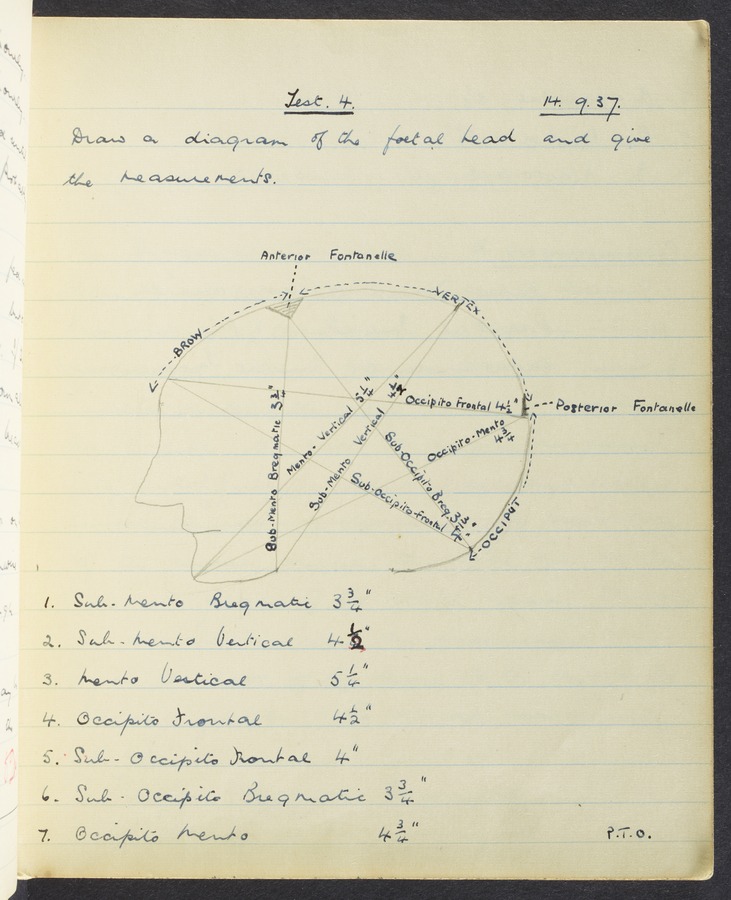 Test. 4. 14. 9. 37.
Draw a diagram of the foetal head and give
the measurements.
Anterior Fontanelle
VERTEX
BROW
Occipito Frontal 4½"
Posterior Fontanelle
Mento-Vertical 5¼"
Sub-Mento Vertical 4½"
Sub-Mento Bregmatic 3¾"
Occipito-Mento 4¾
Sub-Occipito Breg. 3¾"
Sub-Occipito-Frontal 4"
OCCIPUT
1. Sub-Mento Bregmatic 3¾"
2. Sub-Mento Vertical 4½"
3. Mento Vertical 5¼"
4. Occipito Frontal 4½"
5. Sub-Occipito Frontal 4"
6. Sub-Occipito Bregmatic 3¾"
7. Occipito Mento 4¾"
P.T.O.